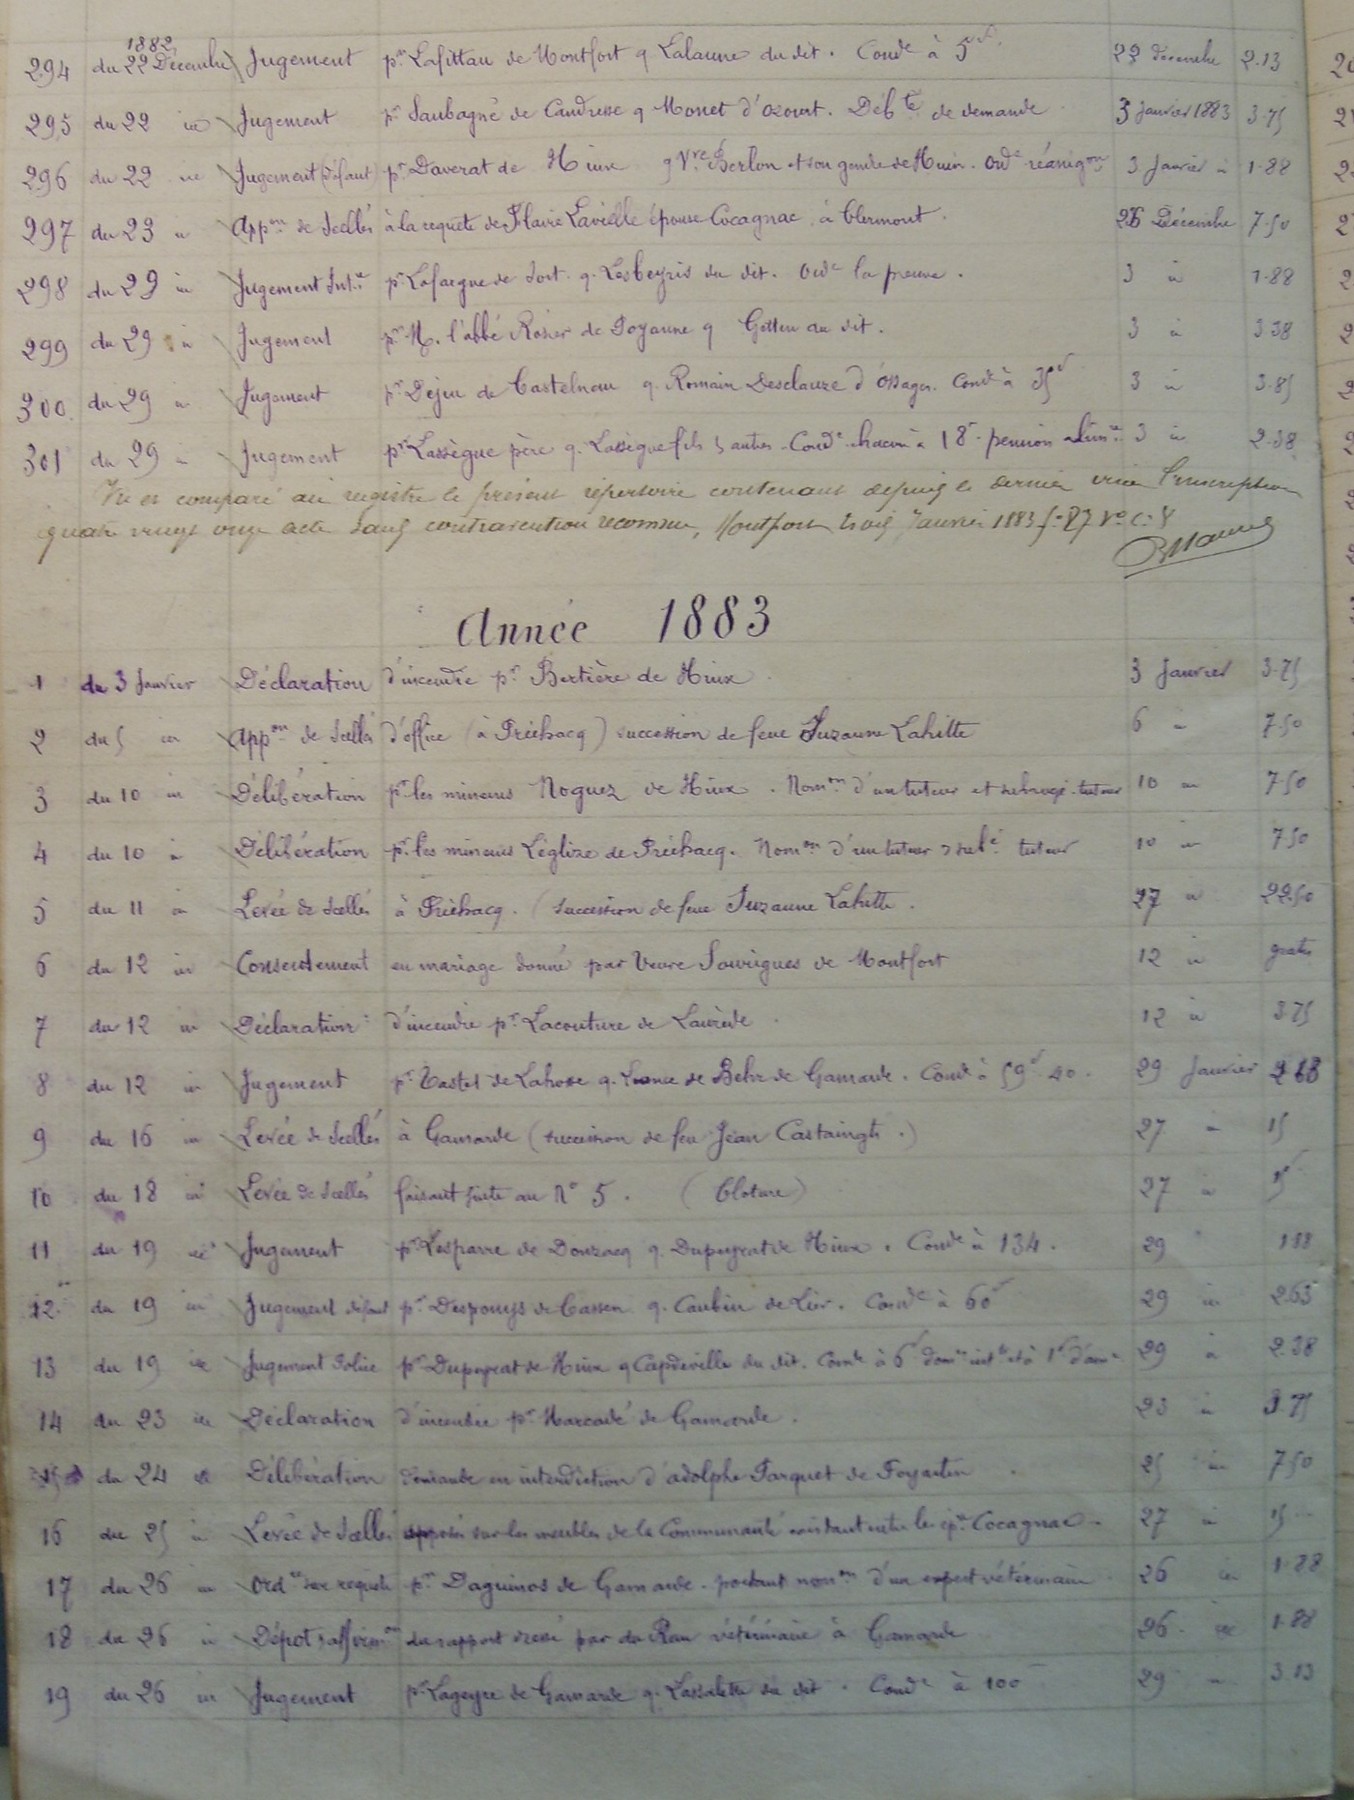 1882
294 du 22 Décembre Jugement pr Lafittau de Montfort q Lalanne du dit. Condé à 5f 22 décembre 2.13
295 du 22 id Jugement pr Saubagné de Candresse q Monet d'ozourt. Débté de demande 3 Janvier 1883 3.75
296 du 22 id Jugement (défaut) pr Daverat de Hinx q Vve Berlon et son gendre de Hinx. Ordce réassignon 3 Janvier id 1.88
297 du 23 id Appon de Scellés à la requête de Marie Lavielle épouse Cocagnac à Clermont. 26 Décembre 7.50
298 du 29 id Jugement Intre pr Lafargue de Sort q. Lesbeyris du dit. Ordce la preuve. 3 id 1.88
299 du 29 id Jugement pr M. l'abbé Rosier de Poyanne q du dit. 3 id 3.38
300 du 29 id Jugement pr Dejeu de Castelnau q. Romain Desclauze d'Ossages. Condé à 35f 3 id 3.85
301 du 29 id Jugement pr Lassègue père q. Lassègue fils & autres. Condé chacun à 18f pension alimre 3 id 2.38
Vu et comparé au registre le présent répertoire contenant depuis le dernier visa l'inscription
quatre vingt onze actes sans contravention reconnue, Montfort trois Janvier 1883 f° 87 Vo c. 8
Année 1883
1 du 3 Janvier Déclaration d'incendie pr Bertière de Hinx. 3 Janvier 3.75
2 du 5 id Appon de Scellés d'office (à Préchacq) succession de feue Suzanne Lahitte 6 id 7.50
3 du 10 id Délibération pr les mineurs Noguez de Hinx. Nomon d'un tuteur et subrogé-tuteur 10 id 7.50
4 du 10 id Délibération pr les mineurs Léglize de Préchacq. Nomon d'un tuteur & subé tuteur 10 id 7.50
5 du 11 id Levée de Scellés à Préchacq. (succession de feue Suzanne Lahitte. 27 id 22.50
6 du 12 id Consentement en mariage donné par Veuve de Montfort 12 id gratis
7 du 12 id Déclaration d'incendie pr Lacouture de Laurède. 12 id 3.75
8 du 12 id Jugement pr Castet de Lahosse q. de Behr de Gamarde. Condé à 59f 40. 29 Janvier 2.63
9 du 16 id Levée de Scellés à Gamarde (succession de feu Jean Castaingts.) 27 id 15
10 du 18 id Levée de Scellés faisant suite au No 5. (Cloture) 27 id
11 du 19 id Jugement pr Lesparre de Donzacq q. Dupeyrat de Hinx. Condé à 134. 29 1.88
12 du 19 id Jugement défaut pr Desponys de Cassen q. Caubin de Lier. Condé à 60f 29 id 2.63
13 du 19 id Jugement Police pr Dupeyrat de Hinx q Capdeville du dit. Condé à 6f et à 1f d'amde 29 id 2.38
14 du 23 id Déclaration d'incendie pr Marcadé de Gamarde. 23 id 3.75
15 du 24 id Délibération demande en interdiction d'adolphe Farguet de Poyartin. 25 id 7.50
16 du 25 id Levée de Scellés apposés sur les meubles de la Communauté existant entre les épx Cocagnac 27 id 15
17 du 26 id Ordce sur requête pr Daguinos de Gamarde. portant nomon d'un expert vétérinaire. 26 id 1.88
18 du 26 id Dépot & affirmon du rapport dressé par du Rau vétérinaire à Gamarde 26 id 1.88
19 du 26 id Jugement pr Lageyre de Gamarde q. Lassalette du dit. Condé à 100 29 id 3.13